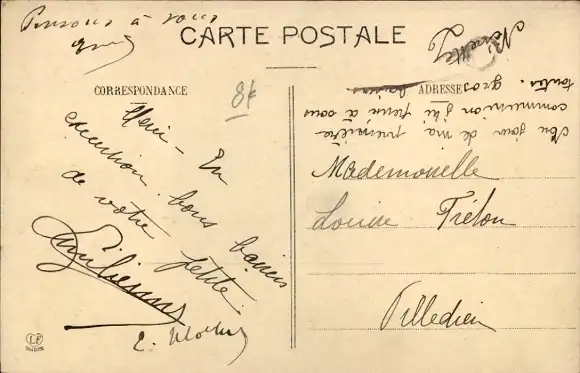 Pensons à vous
CARTE POSTALE
CORRESPONDANCE
ADRESSE
8f
Merci - En
excursion. bons baisers
de votre petite
E.
Au jour de ma première
communion j'ai pensé à vous
toutes. gros baisers
Noisette
Mademoiselle
Louise Trélon
Villedieu
LF